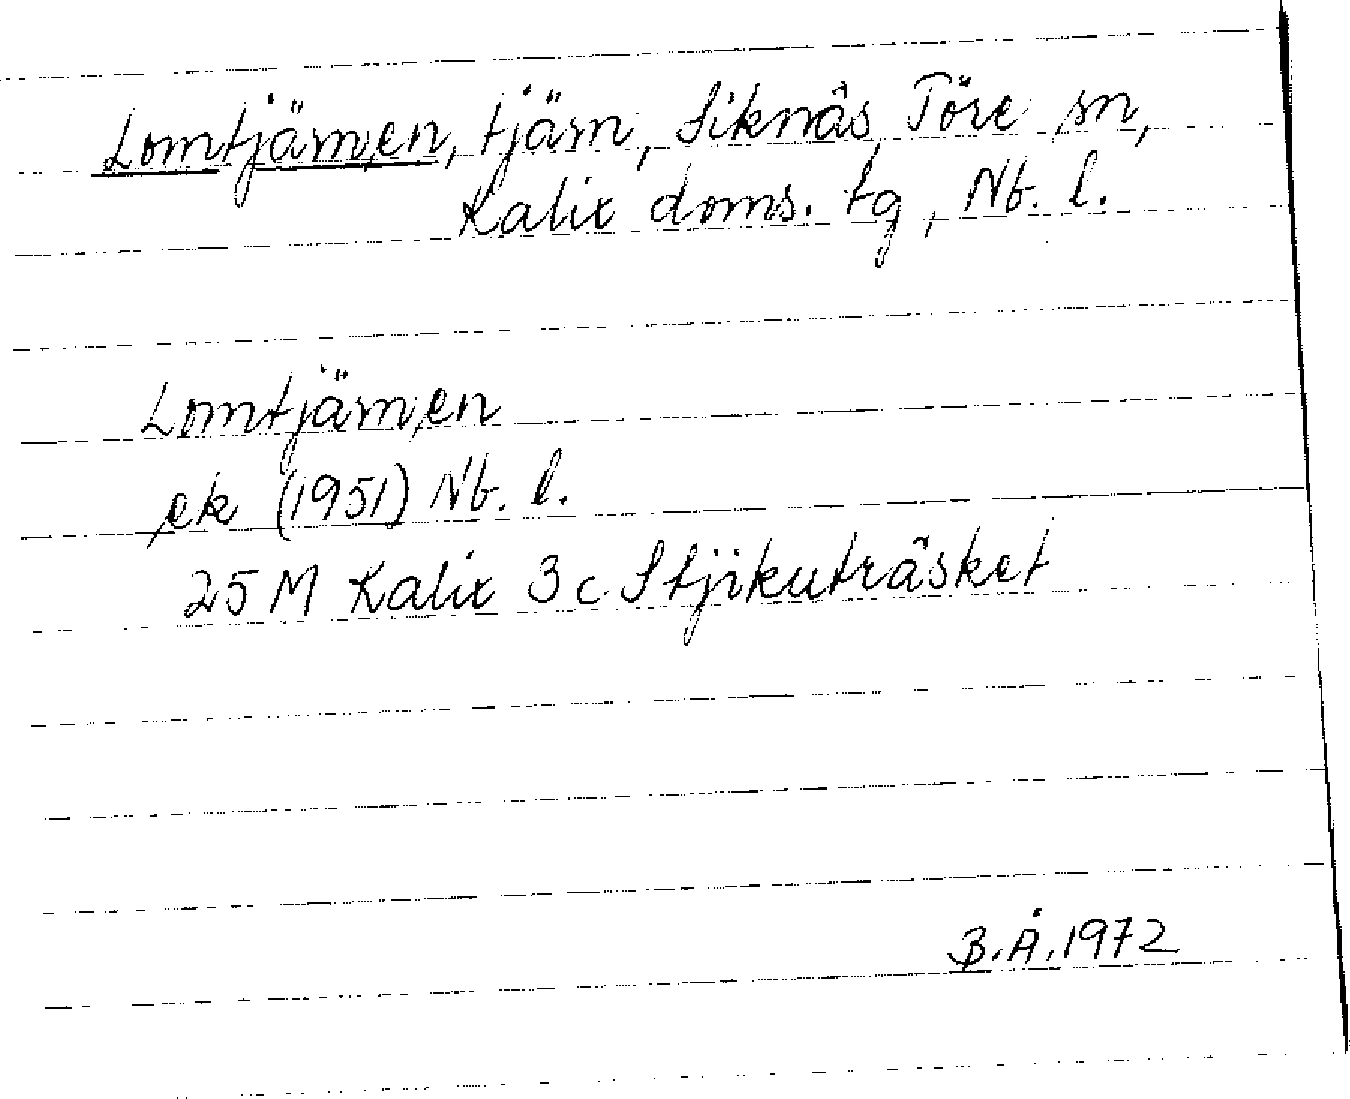 Lomtjärnen, tjärn, Siknäs Töre sn,
Kalix doms. tg, Nb. l.
Lomtjärnen
ek (1951) Nb. l.
25 M Kalix 3 c Stjikuträsket
B.Å.1972